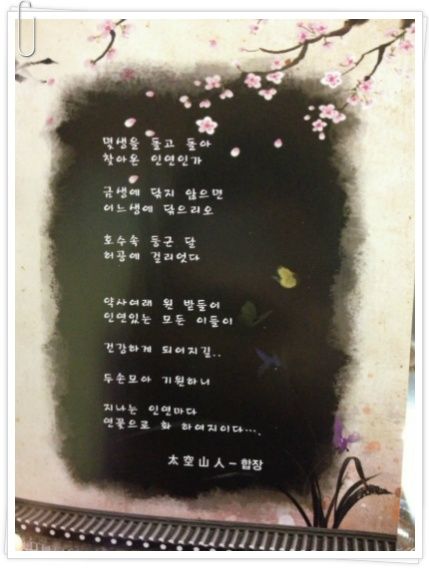 몇생을 돌고 돌아
찾아온 인연인가
금생에 닦지 않으면
어느생에 닦으리오
호수속 둥근 달
허공에 걸리었다
약사여래 원 받들어
인연있는 모든 이들이
건강하게 되어지길..
두손모아 기원하니
지나는 인연마다
연꽃으로 화 하여지이다···.
太空山人-합장